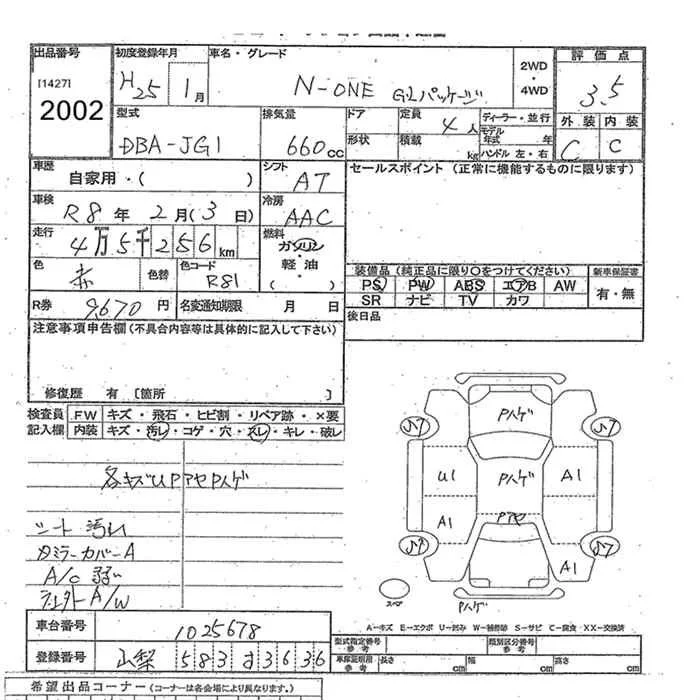 出品番号 初度登録年月 車名・グレード 2WD・4WD 評価点
[1427]
2002
H25 1月 N-ONE G・Lパッケージ 3.5
型式 排気量 ドア 定員 4人 ディーラー・並行 外装 内装
DBA-JG1 660cc 形状 積載 kg モデル年式 年 ハンドル 左・右 C C
車歴 シフト セールスポイント (正常に機能するものに限ります)
自家用・( ) AT
車検 冷房
R8年2月(3日) AAC
走行 燃料
4万5千256km ガソリン・軽油・( )
色 色替 色コード
赤 R81
装備品 (純正品に限り〇をつけてください) 新車保証書
PS PW ABS エアB AW 有・無
SR ナビ TV カワ
R券 9,670円 名変通知期限 月 日
後日品
注意事項申告欄 (不具合内容等は具体的に記入して下さい)
修復歴 有 〔箇所 〕
検査員 FW キズ・飛石・ヒビ割・リペア跡・×要
記入欄 内装 キズ・汚レ・コゲ・穴・スレ・キレ・破レ
各キズUPアセPハゲ
シート汚レ
カミラーカバーA
A/C弱い
A/W
Pハゲ
U1 Pハゲ A1
A1 Pアセ
A1
スペア Pハゲ
A―キズ E―エクボ U―凹み W―補修跡 S―サビ C―腐食 XX―交換済
車台番号 1025678
登録番号 山梨 583 す 3636
型式指定番号 参考 類別区分番号 参考
車庫証明用 参考 長さ cm 幅 cm 高さ cm
希望出品コーナー (コーナーは各会場により異なります。)